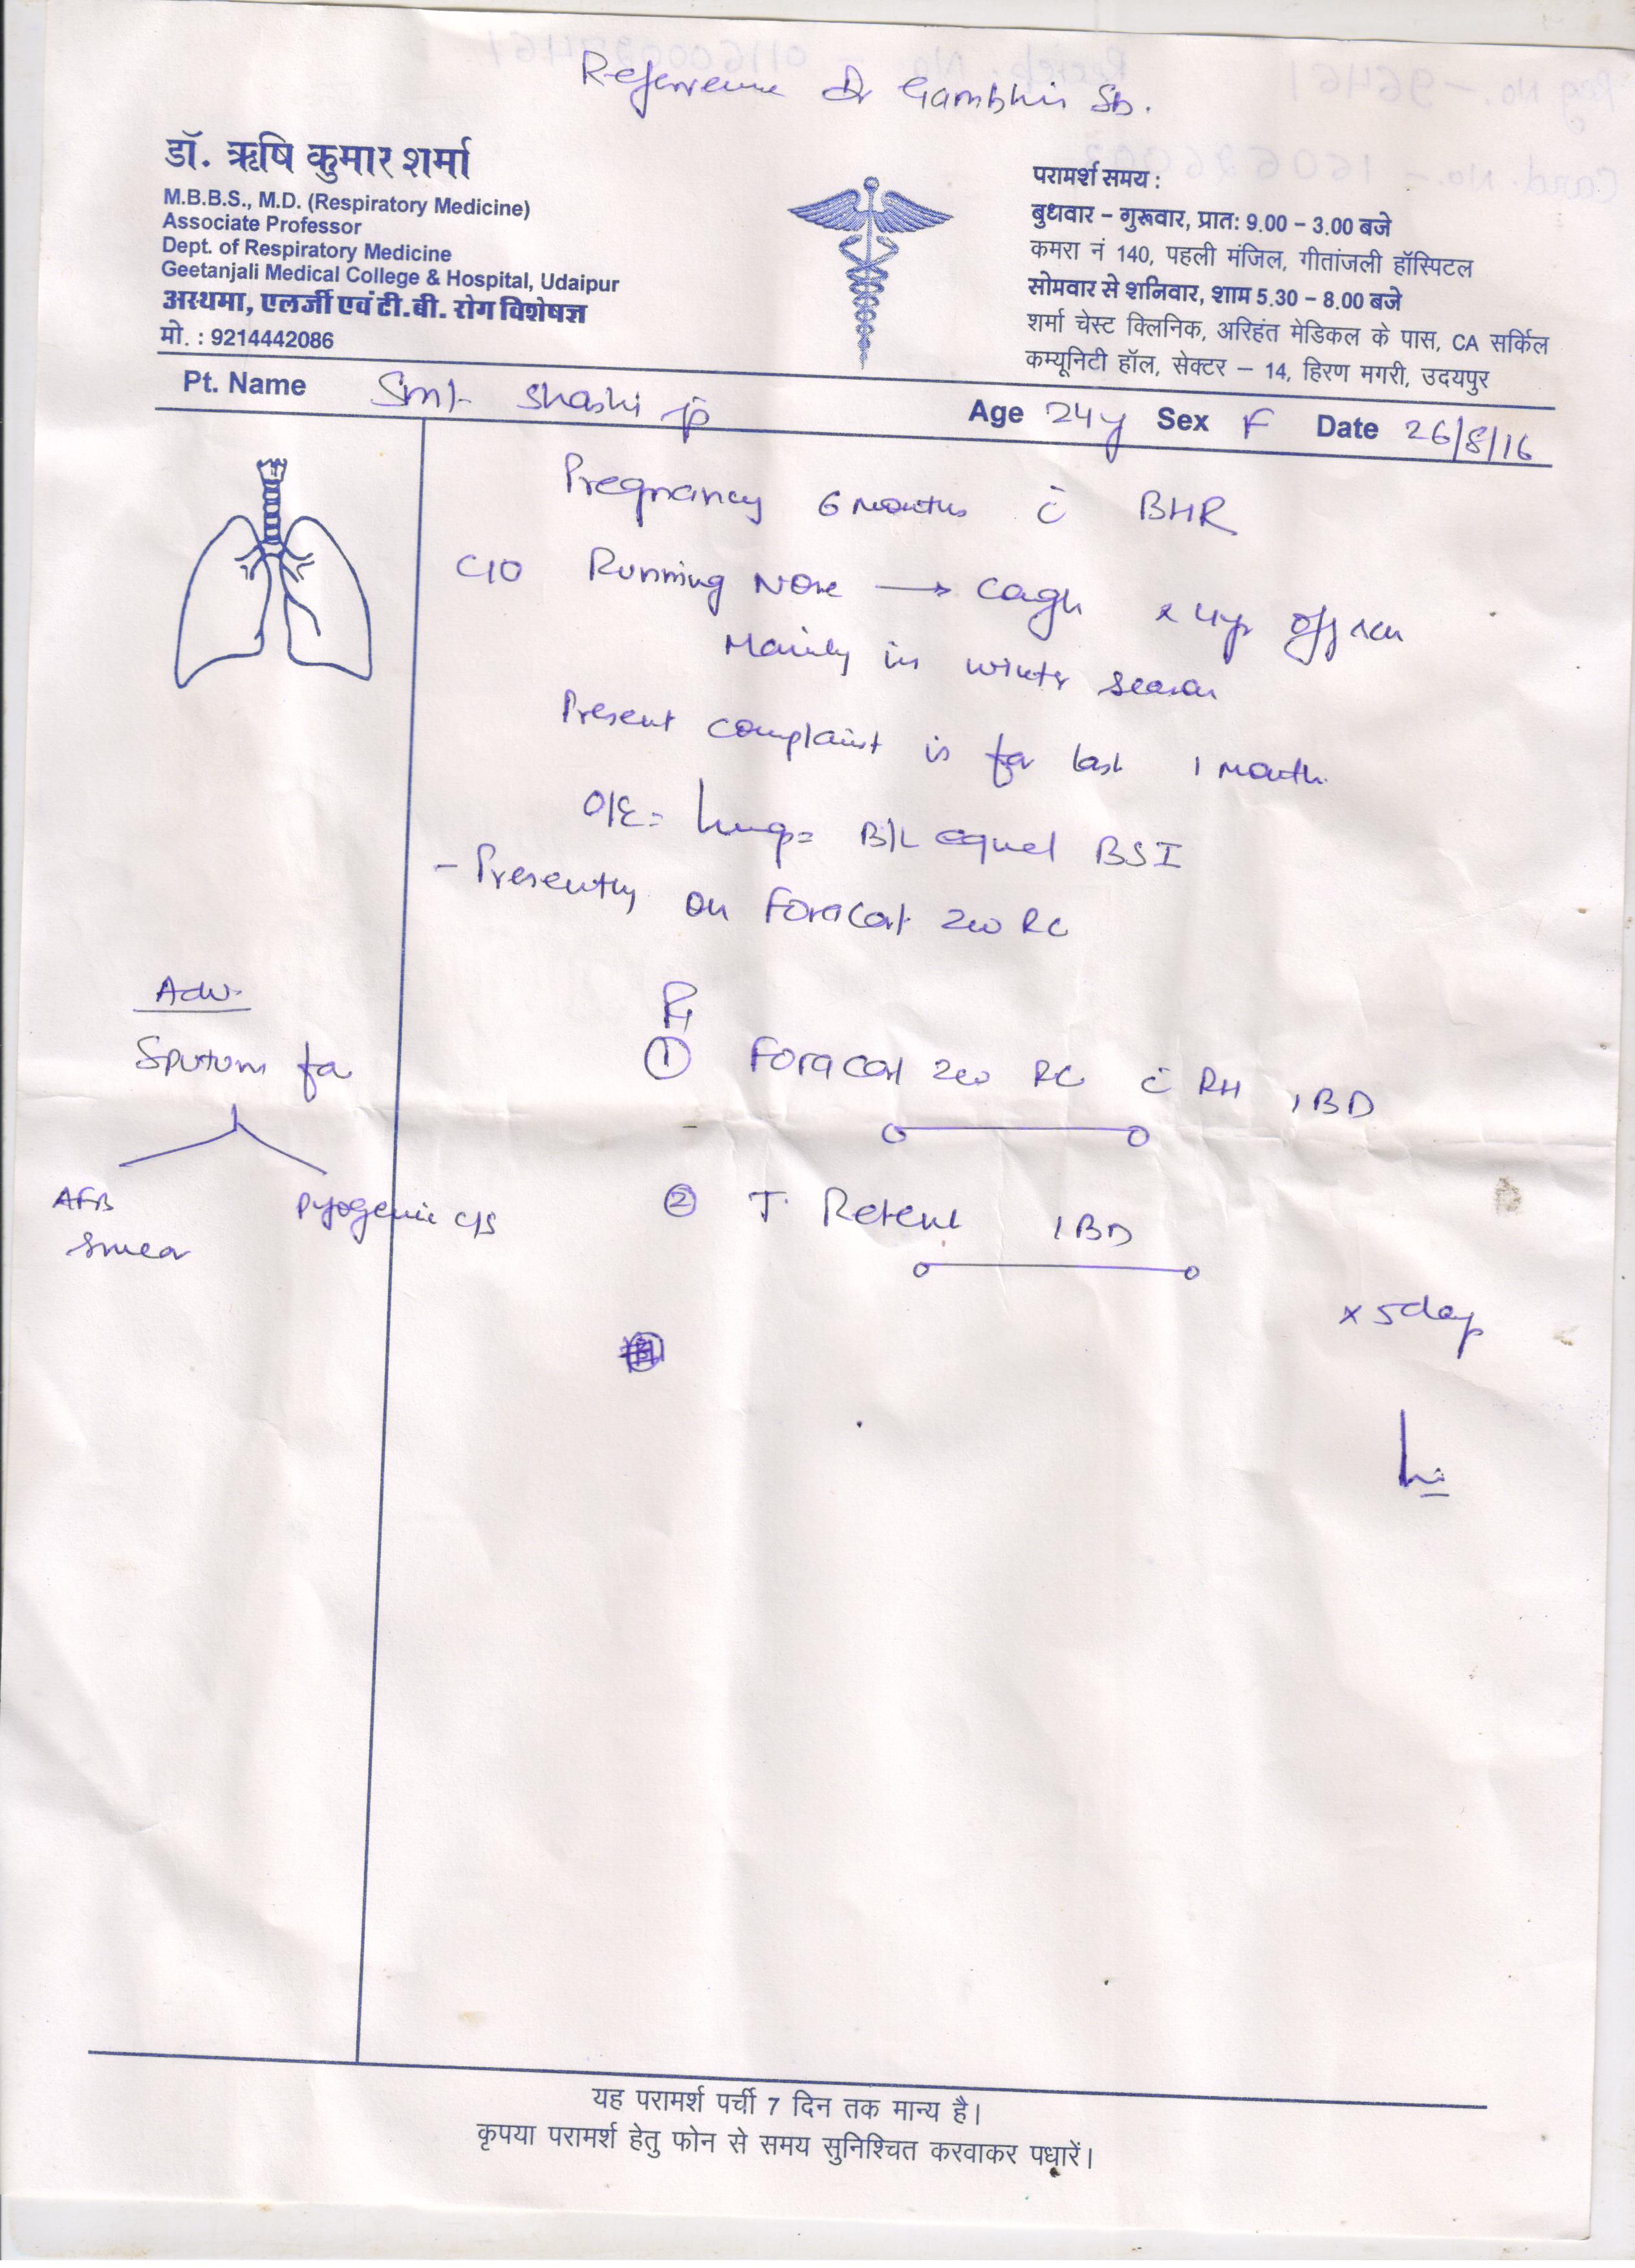 Referrence Dr Gambhir Sb.
डॉ. ऋषि कुमार शर्मा
M.B.B.S., M.D. (Respiratory Medicine)
Associate Professor
Dept. of Respiratory Medicine
Geetanjali Medical College & Hospital, Udaipur
अस्थमा, एलर्जी एवं टी.बी. रोग विशेषज्ञ
मो. : 9214442086
परामर्श समय :
बुधवार – गुरूवार, प्रातः 9.00 – 3.00 बजे
कमरा नं 140, पहली मंजिल, गीतांजली हॉस्पिटल
सोमवार से शनिवार, शाम 5.30 – 8.00 बजे
शर्मा चेस्ट क्लिनिक, अरिहंत मेडिकल के पास, CA सर्किल
कम्यूनिटी हॉल, सेक्टर – 14, हिरण मगरी, उदयपुर
Pt. Name Smt. Shashi ji Age 24y Sex F Date 26/8/16
Pregnancy 6 months c̄ BHR
C/O Running Nose → Cough x 4yr off &on
Mainly in winter season
Present complaint is for last 1 month
O/E = Lung = B/L equal BSI
- Presently on Foracort 200 RC
Adv.
Sputum for
AFB Smear
Pyogenic C/S
Rx
① Foracort 200 RC c̄ RH 1 BD
② T. 1 BD
x 5 day
यह परामर्श पर्ची 7 दिन तक मान्य है।
कृपया परामर्श हेतु फोन से समय सुनिश्चित करवाकर पधारें।